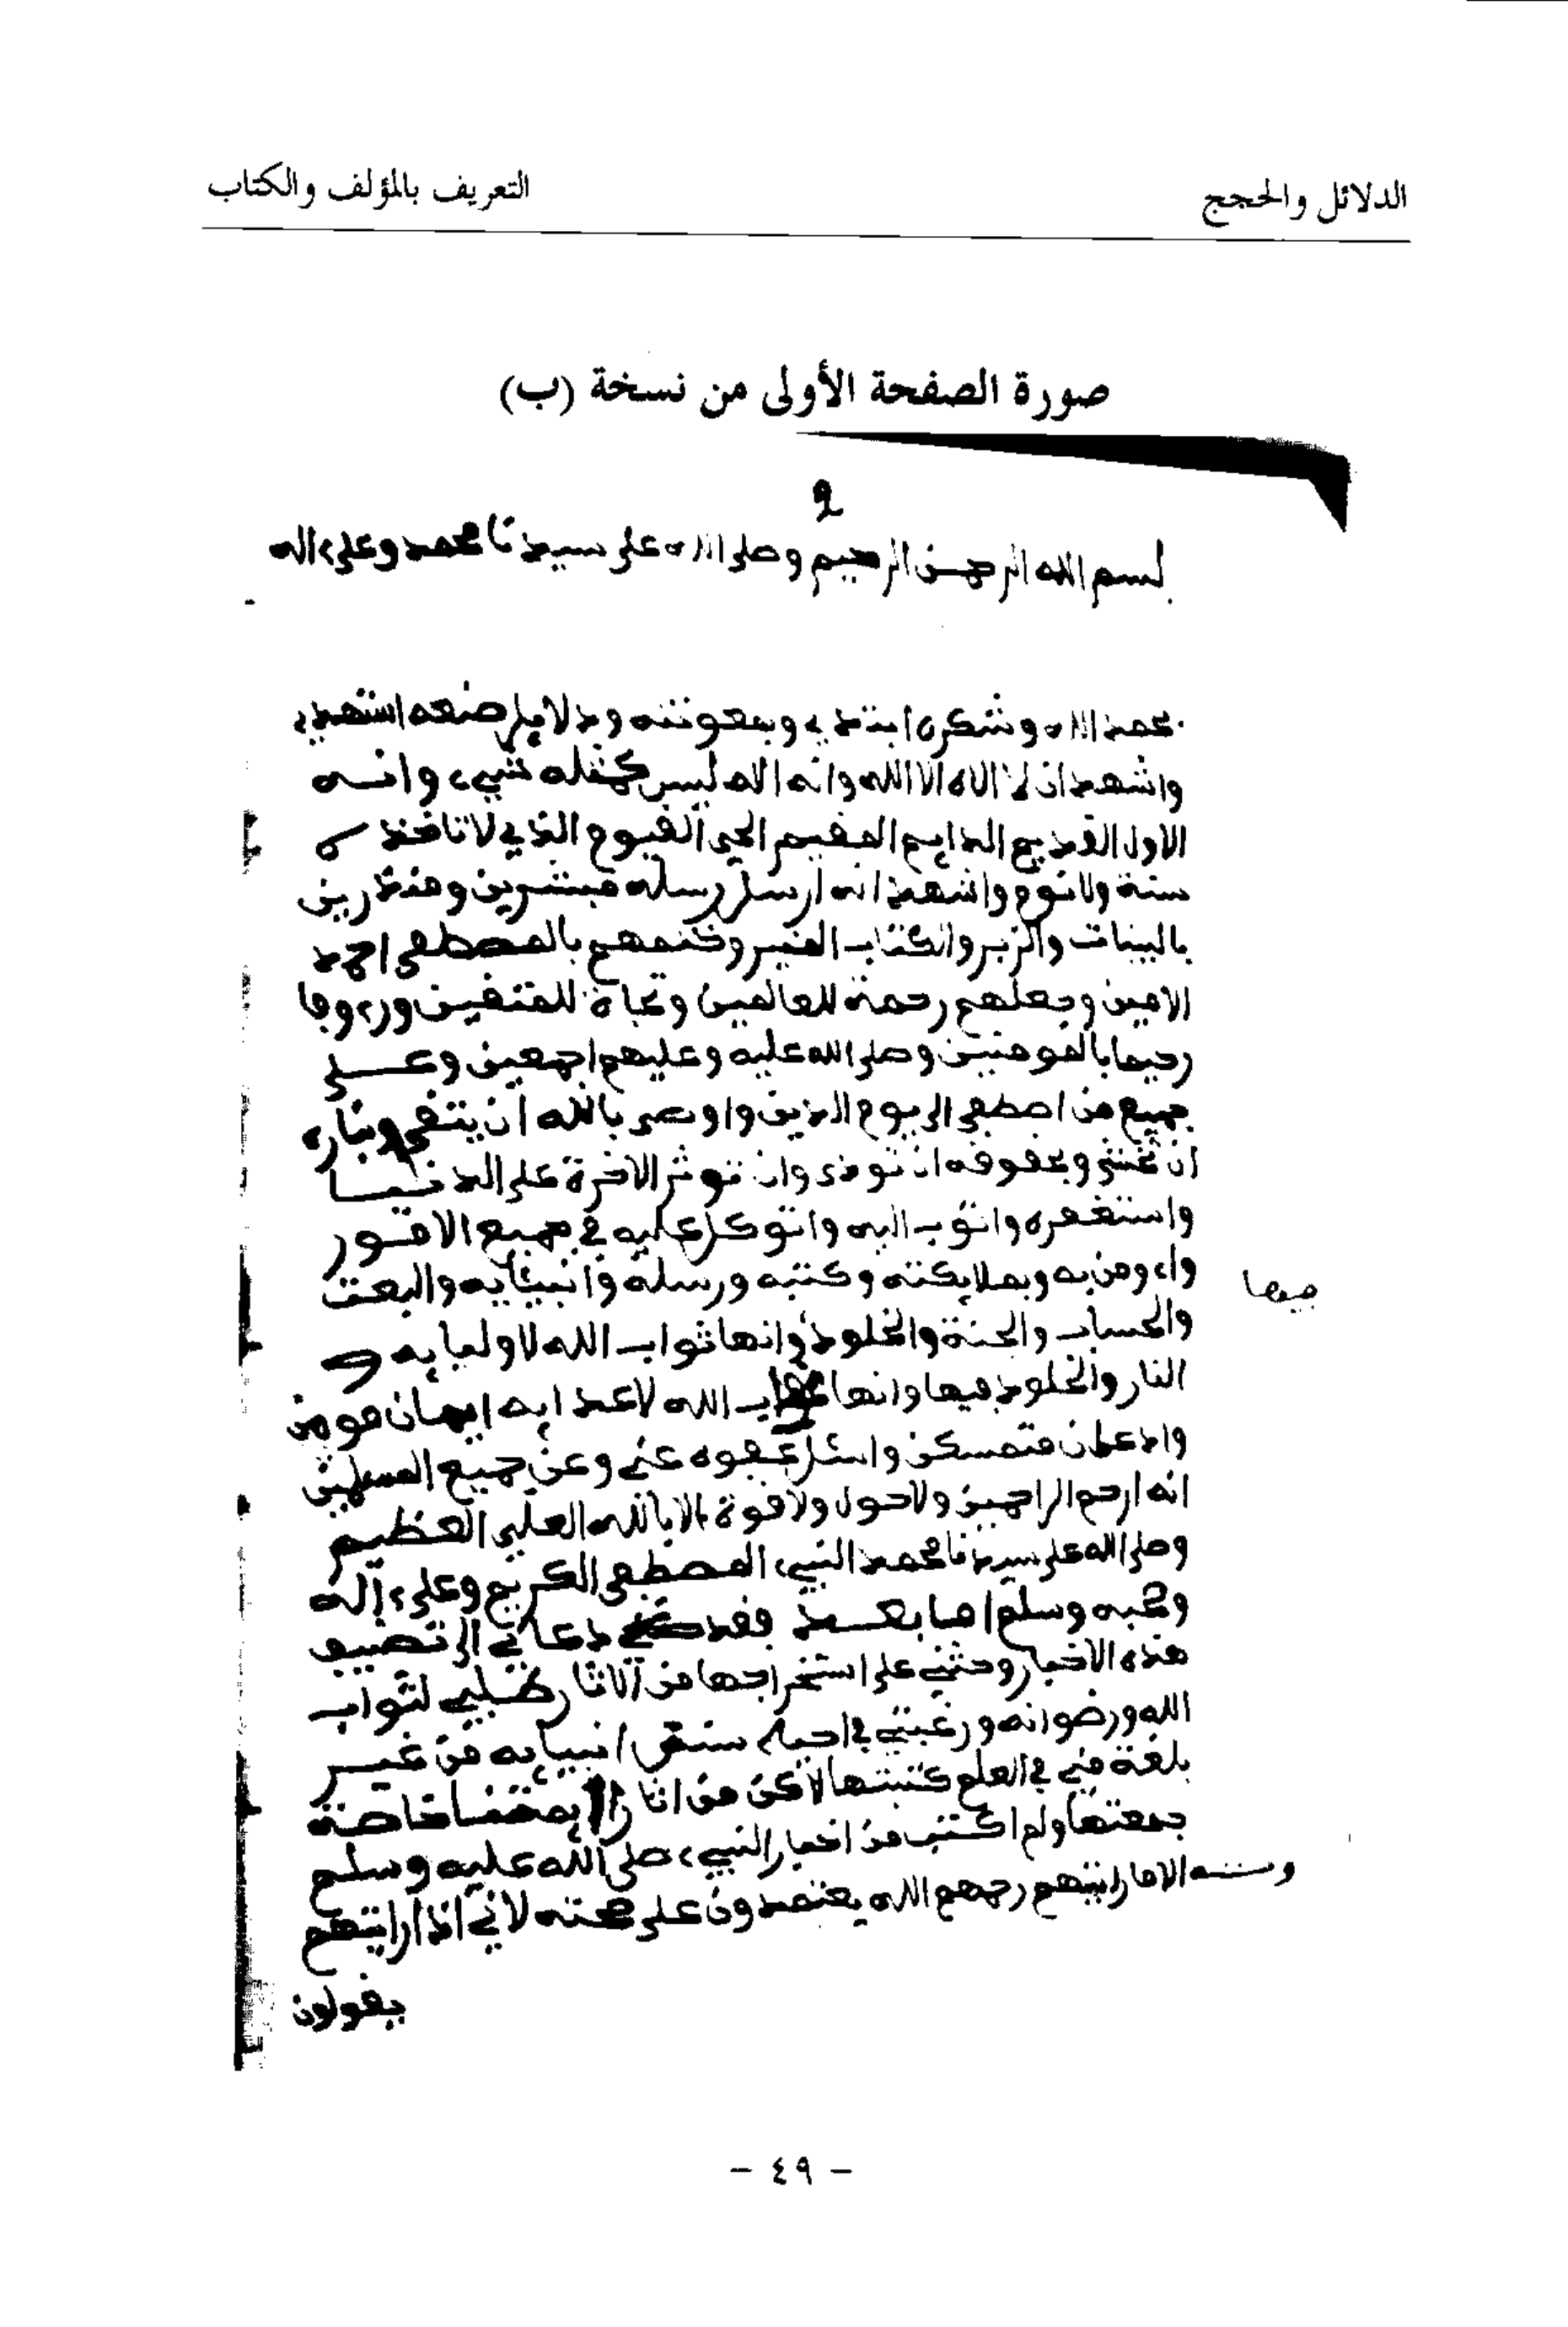 الدلائل والحجج
التعريف بالمؤلف والكتاب
صورة الصفحة الأولى من نسخة (ب)
2
بسم الله الرحمن الرحيم وصلى الله على سيدنا محمد وعلىءاله
بحمد الله وشكره ابتدي وبمعونته ودلايل صنعه استهدي
واشهد ان لا الاه الا الله وانه الاه ليس كمثله شيء وانه
الاول القديم الدايم المقيم الحي القيوم الذي لا تاخذه
سنة ولا نوم واشهد انه ارسل رسله مبشرين ومنذرين
بالبينات والزبر والكتاب المنير وختمهم بالمصطفى احمد
الامين وجعلهم رحمة للعالمين ونجاة للمتقين ورءوفا
رحيما بالمومنين وصلى الله عليه وعليهم اجمعين وعلى
جميع من اصطفى الى يوم الدين واوصى بالله ان يتقى
ان تخشى وبحقوقه ان تودى وان توثر الاخرة على الدنيا
واستغفره واتوب اليه واتوكل عليه في جميع الامور
واءومن به وبملايكته وكتبه ورسله وانبيايه والبعث
والحساب والجنة والخلود وانها ثواب الله لاوليايه و
فيها
النار والخلود فيها وانها عقاب الله لاعدايه ايمان مومن
واذعان متمسكن واسئل عفوه عني وعن جميع المسلمين
انه ارحم الراحمين ولا حول ولا قوة الا بالله العلي العظيم
وصلى الله على سيدنا محمد النبيء المصطفى الكريم وعلىءاله
وصحبه وسلم اما بعد فقد دعاني الى تصنيف
هذه الاخبار وحثني على استخراجها من الاثار طلبي لثواب
الله ورضوانه ورغبتي في احياء سنن انبيايه من غير
بلغة مني في العلم كتبتها لاكن من اثار
جمعتها ولم اكتب من اخبار النبيء صلى الله عليه وسلم
وسننه الا ما رايتهم رحمهم الله يعتمدون على صحته لاني اذا رايتهم
يقولون
- ٤٩ -